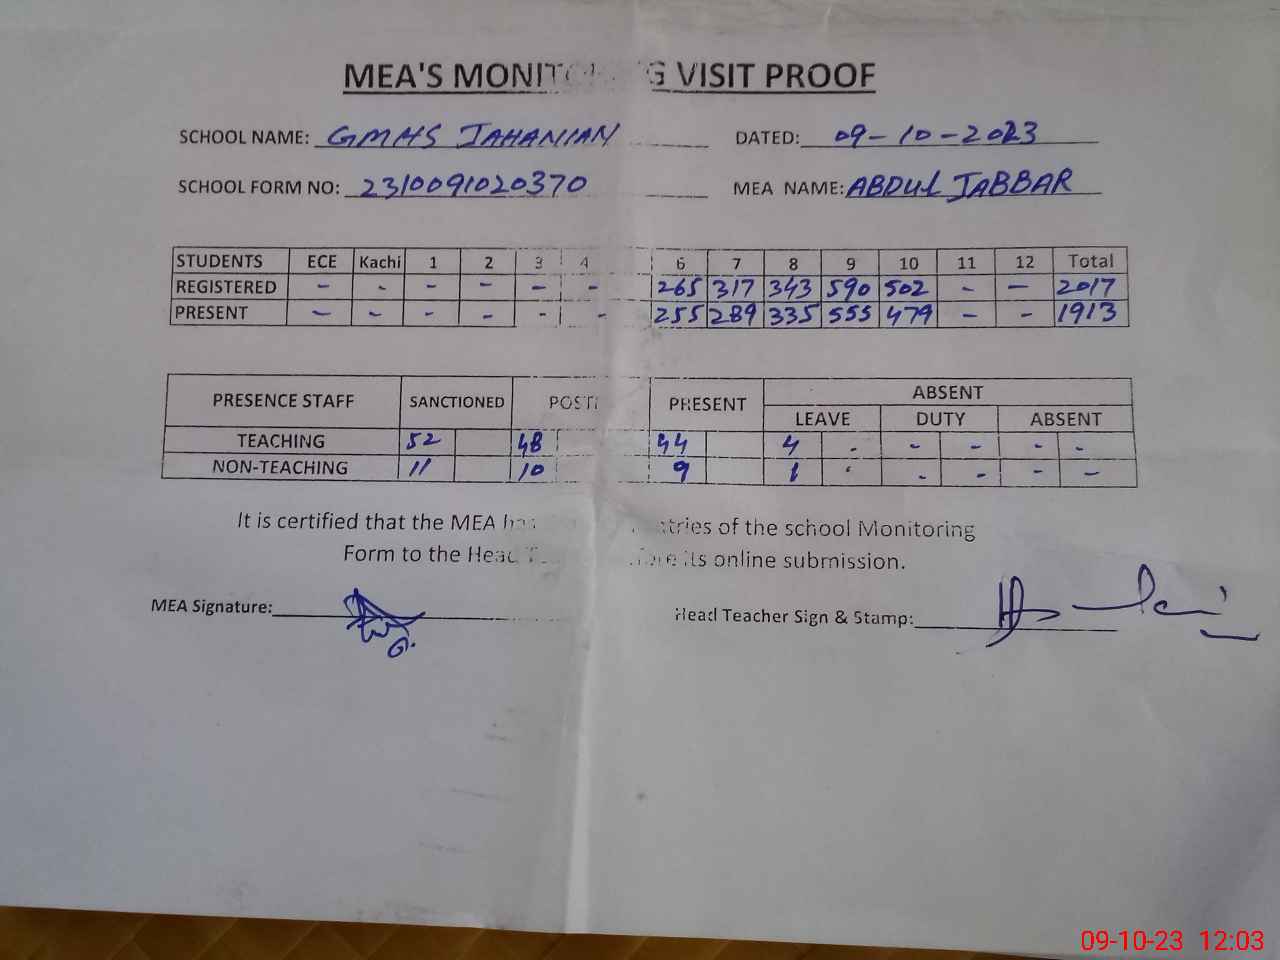 MEA'S MONITORING VISIT PROOF
SCHOOL NAME: GMHS JAHANIAN DATED: 09-10-2023
SCHOOL FORM NO: 2310091020370 MEA NAME: ABDUL JABBAR
STUDENTS ECE Kachi 1 2 3 4 6 7 8 9 10 11 12 Total
REGISTERED - - - - - - 265 317 343 590 502 - - 2017
PRESENT - - - - - - 255 289 335 555 479 - - 1913
PRESENCE STAFF SANCTIONED PRESENT ABSENT
LEAVE DUTY ABSENT
TEACHING 52 48 44 4 - - - - -
NON-TEACHING 11 10 9 1 - - - - -
It is certified that the MEA has of the school Monitoring
Form to the Head its online submission.
MEA Signature: Head Teacher Sign & Stamp:
09-10-23 12:03